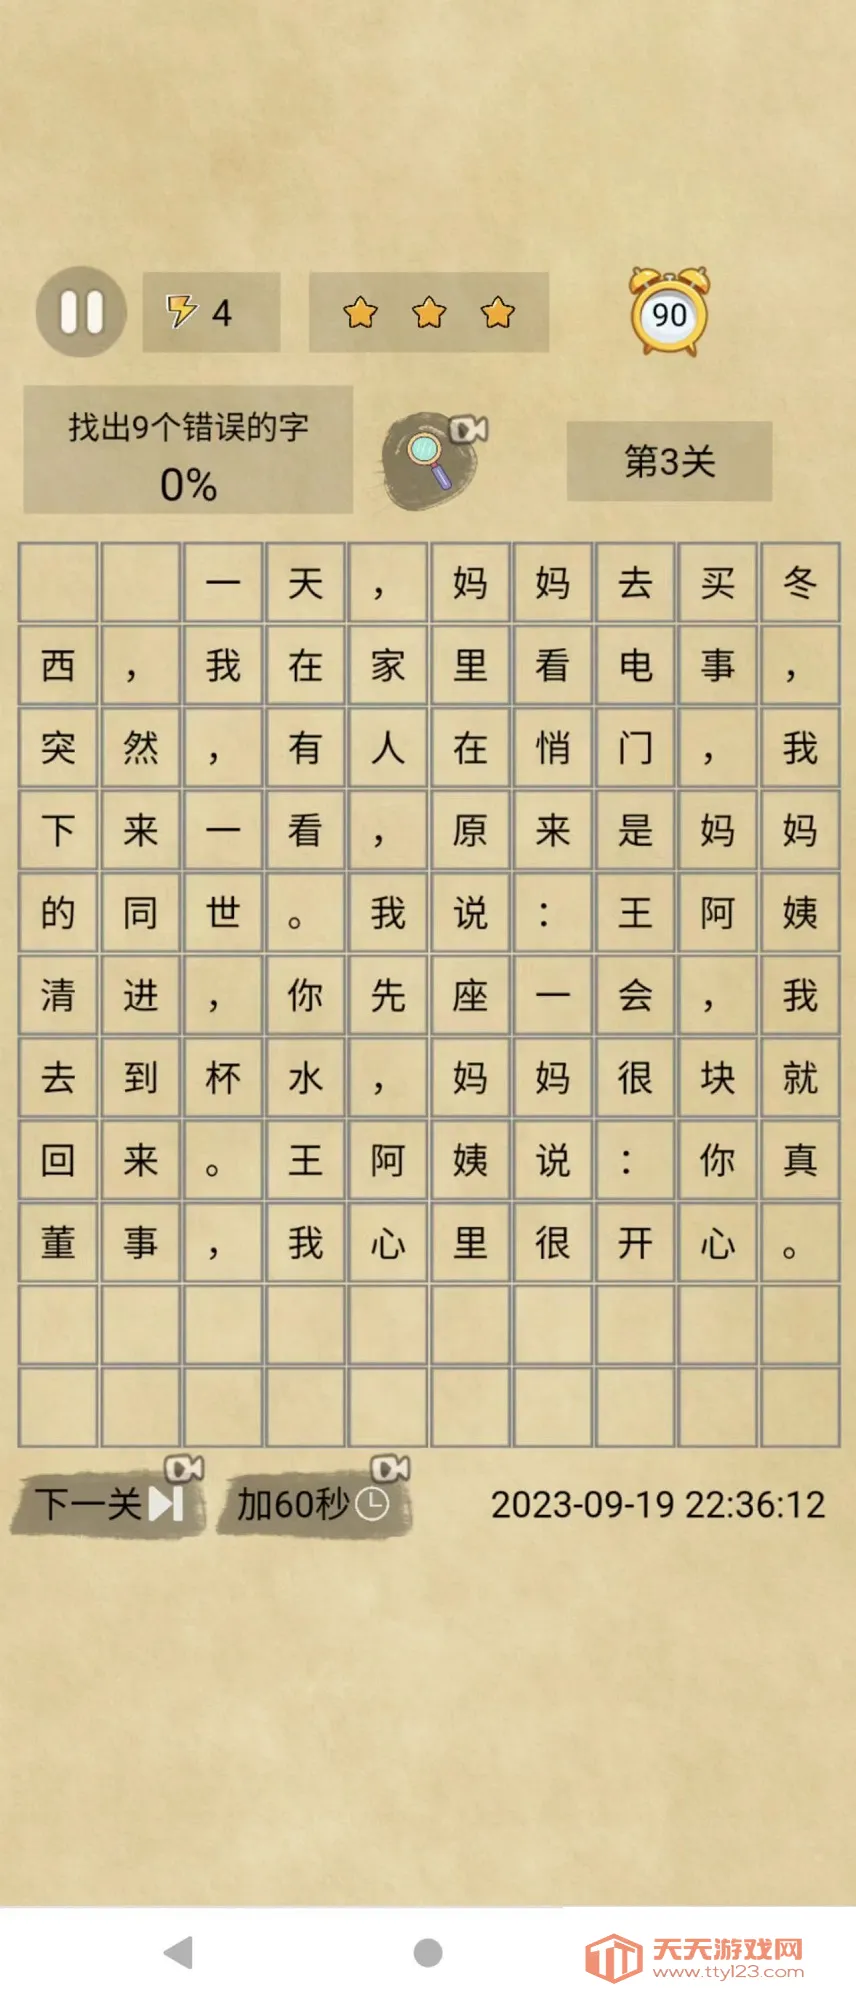 4
90
找出9个错误的字
0%
第3关
一天，妈妈去买冬
西，我在家里看电事，
突然，有人在悄门，我
下来一看，原来是妈妈
的同世。我说：王阿姨
清进，你先座一会，我
去到杯水，妈妈很块就
回来。王阿姨说：你真
董事，我心里很开心。
下一关
加60秒
2023-09-19 22:36:12
天天游戏网
www.tty123.com